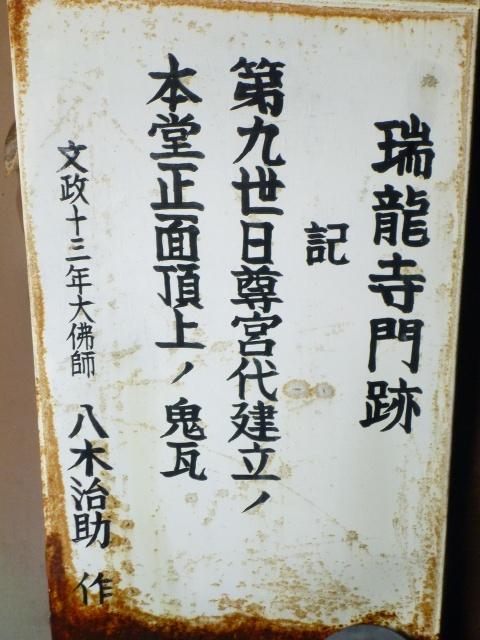 瑞龍寺門跡
記
第九世日尊宮代建立ノ
本堂正面頂上ノ鬼瓦
文政十三年大佛師 八木治助 作